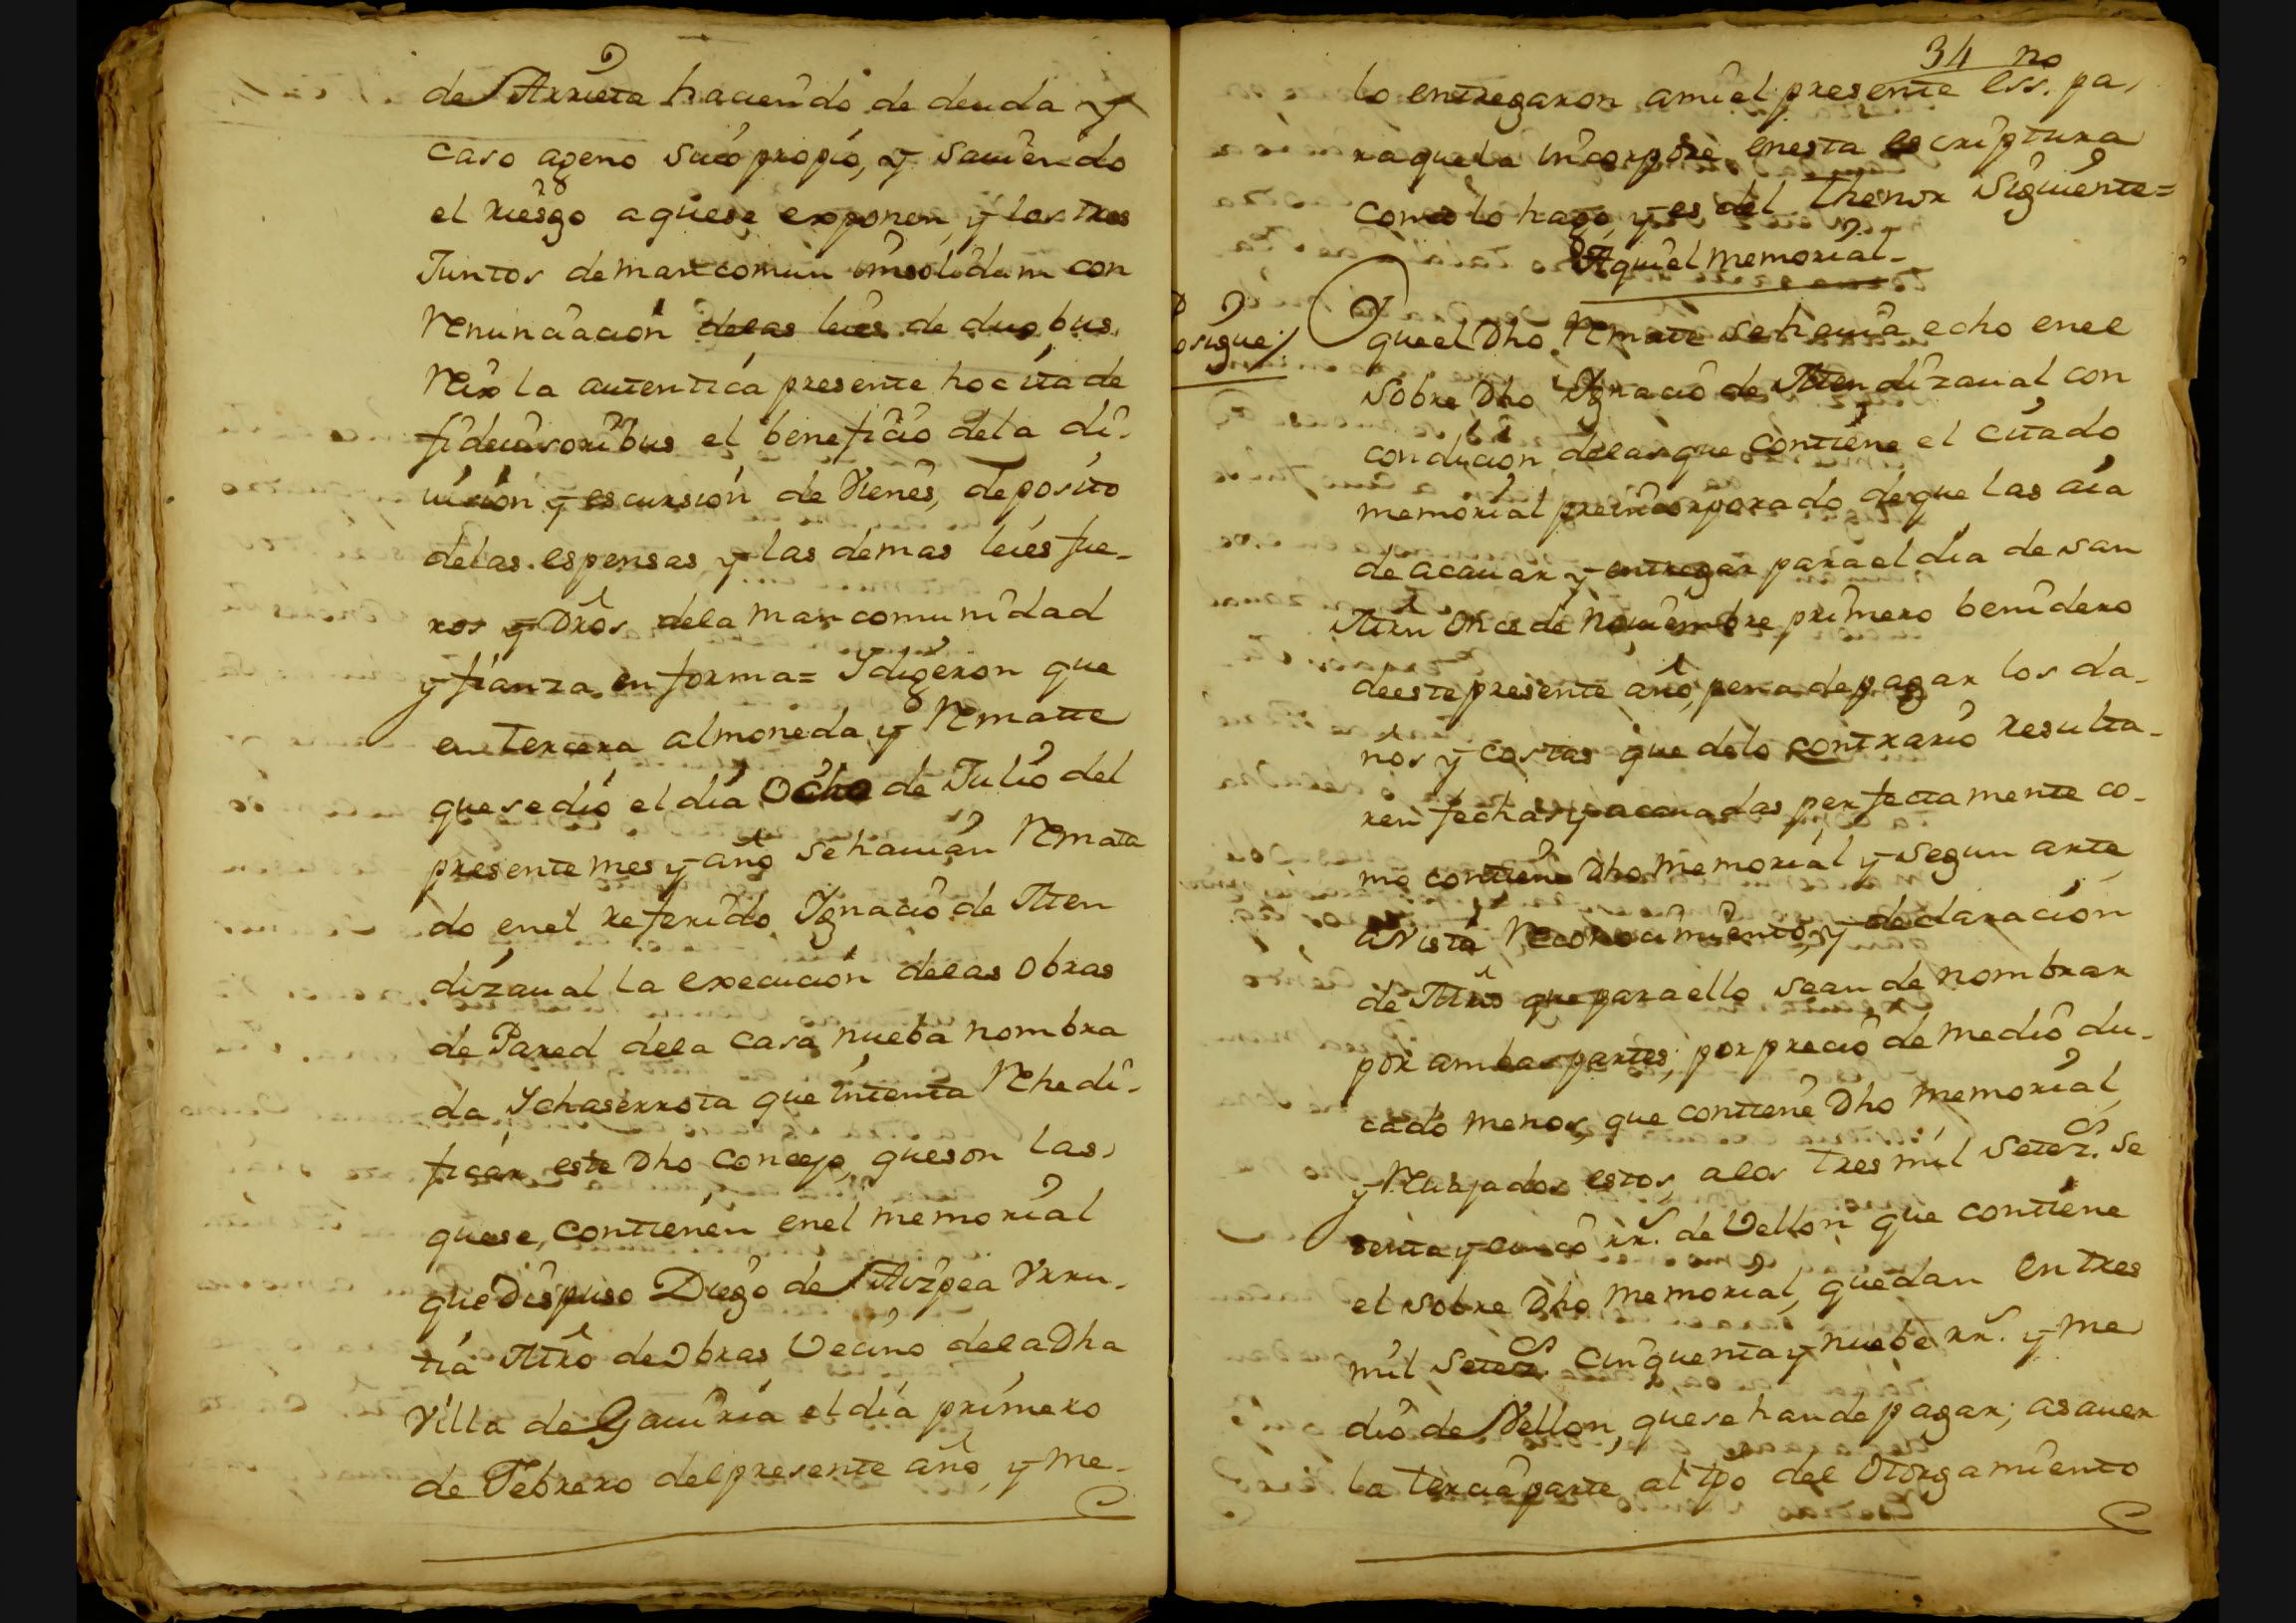 de Arrieta haciendo de deuda y
caso ageno suio propio, y saviendo
el riesgo aquese exponen, y los tres
Juntos de mancomun insolidum con
renunciacion delas leies de duobus
reix la autentica presente hoc ita de
fideiusoribus el beneficio dela di-
uision y escursion de Vienes, deposito
delas espensas y las demas leies fue-
ros y Dros dela mancomunidad
y fianza en forma= Y digeron que
en tercera almoneda y rematte
que se dió el dia Ocho de Julio del
presente mes y año se hauian remata
do enel referido Ignacio de Men
dizaual la execucion delas obras
de Pared dela casa nueba nombra
da Ychaserrota que intenta rehedi-
ficar este Dho concejo, que son las
quese contienen enel memorial
que Dispuso Diego de Aizpea Vrru-
tia Mro de Obras Vecino dela Dha
Villa de Gauiria el dia primero
de Febrero del presente año, y me-
34 no
lo entregaron ami el presente ess. pa
raquela incorpore enesta escriptura
como lo hago, y es del thenor siguiente=
Aqui el memorial-
osigue/
Y que el Dho remate se hauia echo en el
sobre Dho Ignacio de Mendizaual con
condicion delas que contiene el citado
memorial preincorporado de que las aia
de acauar y entregar para el dia de san
Mrn once de Nouiembre primero benidero
deeste presente año, pena de pagar los da-
ños y costas que delo contrario resulta-
ren fechas y acauadas perfectamente co-
mo contiene Dho memorial y segun arte
a vista reconocimiento, y declaracion
de Mros que para ello sean de nombrar
por ambas partes; por precio de medio du-
cado menos, que contiene Dho memorial,
y reuajados estos, alos tres mil setez. se
senta y cinco rr.s de Vellon que contiene
el sobre Dho memorial, quedan en tres
mil setez. cinquenta y nuebe rr.s y me
dio de Vellon, quese han de pagar; asauer
la tercia parte al tpo del Otorgamiento